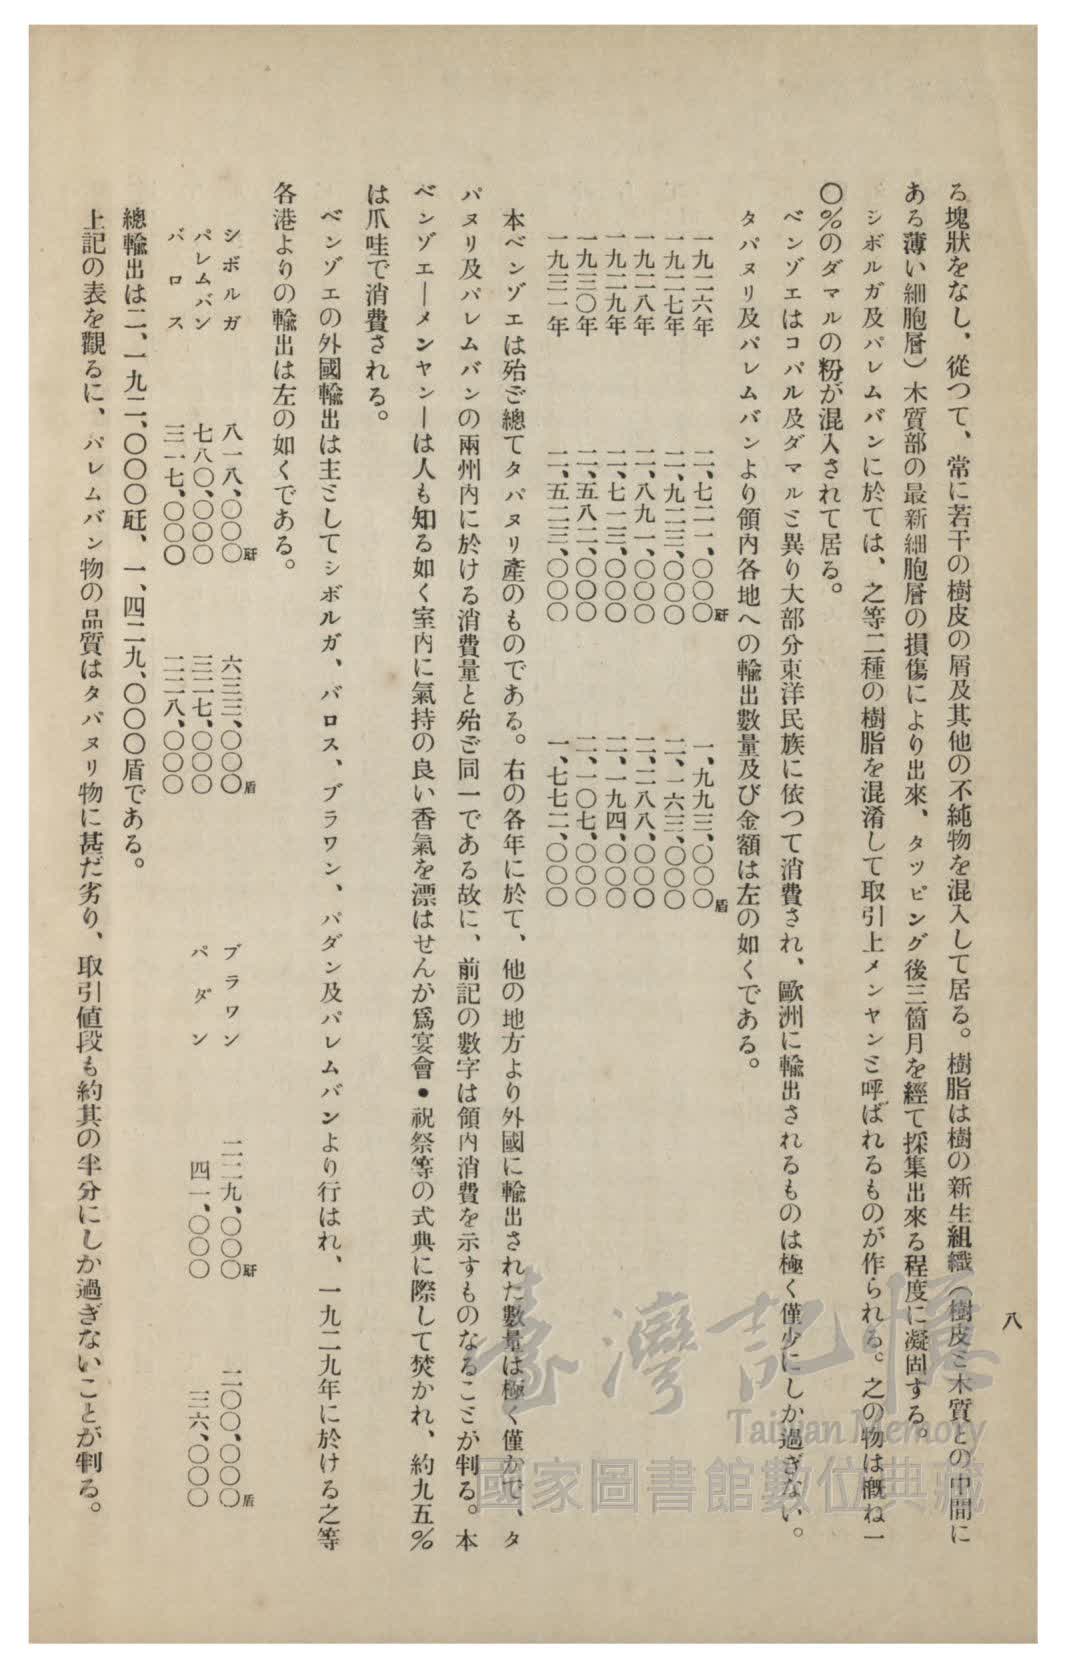 八
る塊狀をなし、從つて、常に若干の樹皮の屑及其他の不純物を混入して居る。樹脂は樹の新生組織（樹皮と木質との中間に
ある薄い細胞層）木質部の最新細胞層の損傷により出來、タツピング後三箇月を經て採集出來る程度に凝固する。
シボルガ及パレムバンに於ては、之等二種の樹脂を混淆して取引上メンヤンと呼ばれるものが作られる。之の物は概ね一
〇％のダマルの粉が混入されて居る。
ベンゾエはコパル及ダマルと異り大部分東洋民族に依つて消費され、歐洲に輸出されるものは極く僅少にしか過ぎない。
タパヌリ及パレムバンより領內各地への輸出數量及び金額は左の如くである。
一九二六年 二、七二一、〇〇〇瓩 一、九九三、〇〇〇盾
一九二七年 二、九二三、〇〇〇 二、一六三、〇〇〇
一九二八年 二、八九一、〇〇〇 二、二八八、〇〇〇
一九二九年 二、七一三、〇〇〇 二、一九四、〇〇〇
一九三〇年 二、五八二、〇〇〇 二、一〇七、〇〇〇
一九三一年 二、五二三、〇〇〇 一、七七二、〇〇〇
本ベンゾエは殆ご總てタパヌリ產のものである。右の各年に於て、他の地方より外國に輸出された數量は極く僅かで、タ
パヌリ及パレムバンの兩州內に於ける消費量と殆ご同一である故に、前記の數字は領內消費を示すものなることが判る。本
ベンゾエ―メンヤン―は人も知る如く室內に氣持の良い香氣を漂はせんが爲宴會・祝祭等の式典に際して焚かれ、約九五％
は爪哇で消費される。
ベンゾエの外國輸出は主としてシボルガ、バロス、ブラワン、パダン及パレムバンより行はれ、一九二九年に於ける之等
各港よりの輸出は左の如くである。
シボルガ 八一八、〇〇〇瓩 六三三、〇〇〇盾 ブラワン 二二九、〇〇〇瓩 二〇〇、〇〇〇盾
パレムバン 七八〇、〇〇〇 三二七、〇〇〇 パダン 四一、〇〇〇 三六、〇〇〇
バロス 三一七、〇〇〇 二二八、〇〇〇
總輸出は二、一九二、〇〇〇瓩、一、四二九、〇〇〇盾である。
上記の表を觀るに、パレムバン物の品質はタパヌリ物に甚だ劣り、取引値段も約其の半分にしか過ぎないことが判る。
臺灣記憶
Taiwan Memory
國家圖書館數位典藏